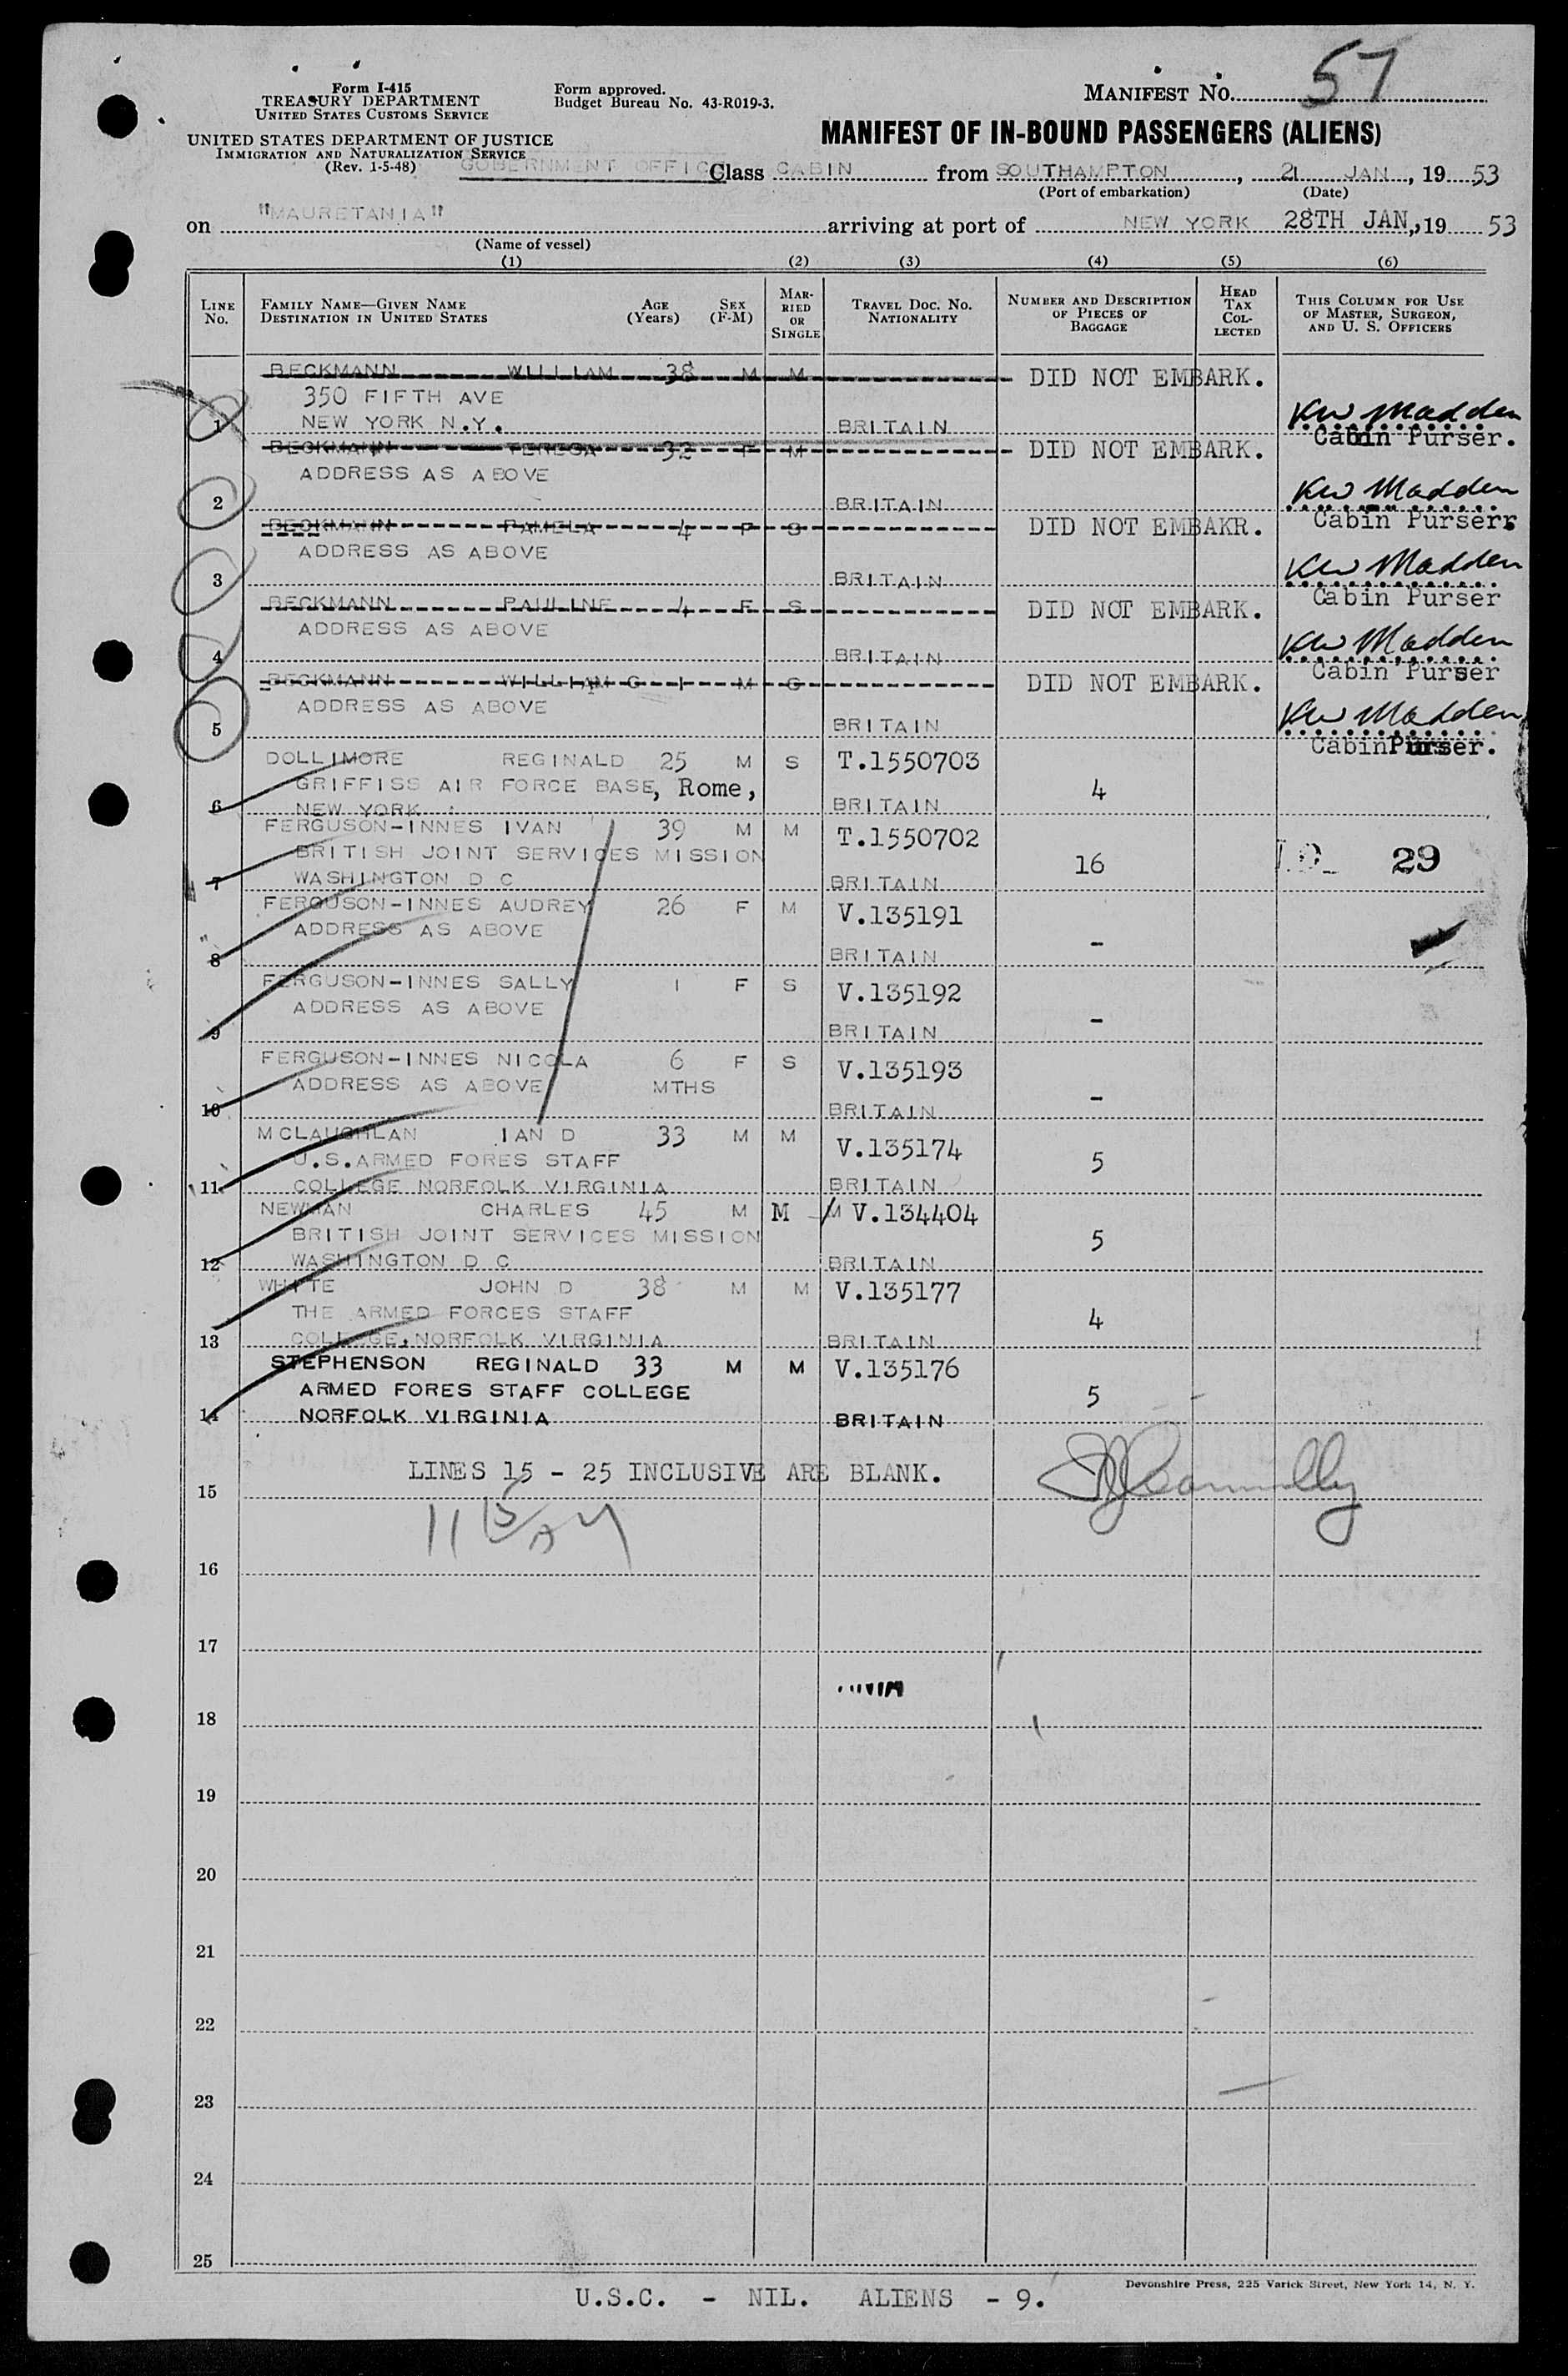 57
Form I-415
TREASURY DEPARTMENT
UNITED STATES CUSTOMS SERVICE
Form approved.
Budget Bureau No. 43-R019-3.
MANIFEST NO.
UNITED STATES DEPARTMENT OF JUSTICE
IMMIGRATION AND NATURALIZATION SERVICE
(Rev. 1-5-48)
MANIFEST OF IN-BOUND PASSENGERS (ALIENS)
GOBERNMENT OFFIC Class CABIN from SOUTHAMPTON, 21 JAN, 19 53
(Port of embarkation) (Date)
on "MAURETANIA" arriving at port of NEW YORK 28TH JAN, 19 53
(Name of vessel)
(1) (2) (3) (4) (5) (6)
LINE NO.
FAMILY NAME—GIVEN NAME
DESTINATION IN UNITED STATES
AGE (Years)
SEX (F-M)
MARRIED OR SINGLE
TRAVEL DOC. NO.
NATIONALITY
NUMBER AND DESCRIPTION OF PIECES OF BAGGAGE
HEAD TAX COLLECTED
THIS COLUMN FOR USE OF MASTER, SURGEON, AND U. S. OFFICERS
BECKMANN WILLIAM 38 M M DID NOT EMBARK.
350 FIFTH AVE
1 NEW YORK N.Y. BRITAIN KW Madden
Cabin Purser.
BECKMANN TERESA 32 F M DID NOT EMBARK.
ADDRESS AS ABOVE
2 BRITAIN KW Madden
Cabin Purserr
BECKMANN PAMELA 4 F S DID NOT EMBAKR.
ADDRESS AS ABOVE
3 BRITAIN KW Madden
Cabin Purser
BECKMANN PAULINE 4 F S DID NOT EMBARK.
ADDRESS AS ABOVE
4 BRITAIN KW Madden
Cabin Purser
BECKMANN WILLIAM G 1 M S DID NOT EMBARK.
ADDRESS AS ABOVE
5 BRITAIN KW Madden
Cabin Purser.
DOLLIMORE REGINALD 25 M S T.1550703
GRIFFISS AIR FORCE BASE, Rome,
6 NEW YORK BRITAIN 4
FERGUSON-INNES IVAN 39 M M T.1550702
BRITISH JOINT SERVICES MISSION
7 WASHINGTON D C BRITAIN 16 29
FERGUSON-INNES AUDREY 26 F M V.135191
ADDRESS AS ABOVE
8 BRITAIN -
FERGUSON-INNES SALLY 1 F S V.135192
ADDRESS AS ABOVE
9 BRITAIN -
FERGUSON-INNES NICOLA 6 F S V.135193
ADDRESS AS ABOVE MTHS
10 BRITAIN -
MCLAUGHLAN IAN D 33 M M V.135174
U.S. ARMED FORES STAFF
11 COLLEGE NORFOLK VIRGINIA BRITAIN 5
NEWMAN CHARLES 45 M M M V.134404
BRITISH JOINT SERVICES MISSION
12 WASHINGTON D C BRITAIN 5
WHYTE JOHN D 38 M M V.135177
THE ARMED FORCES STAFF
13 COLLEGE, NORFOLK VIRGINIA BRITAIN 4
STEPHENSON REGINALD 33 M M V.135176
ARMED FORES STAFF COLLEGE
14 NORFOLK VIRGINIA BRITAIN 5
LINES 15 - 25 INCLUSIVE ARE BLANK.
15
16
17
18
19
20
21
22
23
24
25
Devonshire Press, 225 Varick Street, New York 14, N. Y.
U.S.C. - NIL. ALIENS - 9.